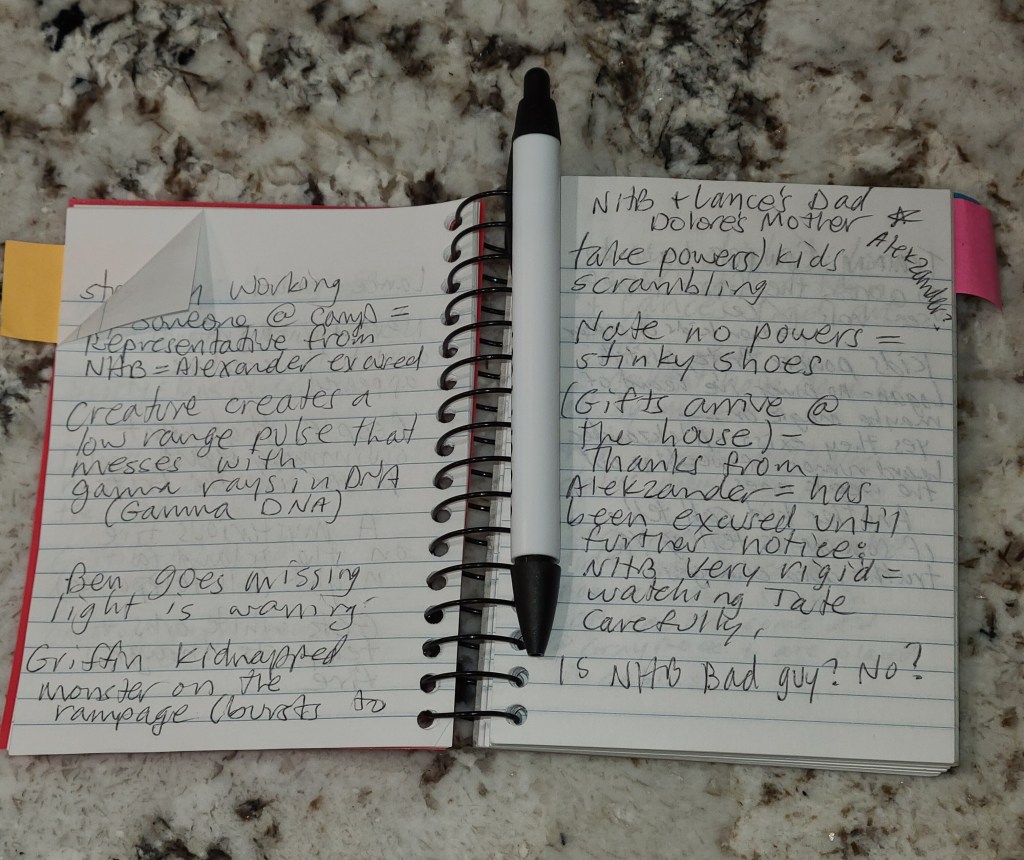 working
someone @ camp =
Representative from
NHB = Alexander excused
Creature creates a
low range pulse that
messes with
gamma rays in DNA
(Gamma DNA)
Ben goes missing
light is waning-
Griffin kidnapped
monster on the
rampage (bursts to
NHB + Lance's Dad
Dolores Mother
* Alekzander?
take powers) kids
scrambling
Nate no powers =
stinky shoes
(Gifts arrive @
the house) -
Thanks from
Alekzander = has
been excused until
further notice:
NHB very rigid =
watching Tate
Carefully,
Is NHB Bad guy? No?